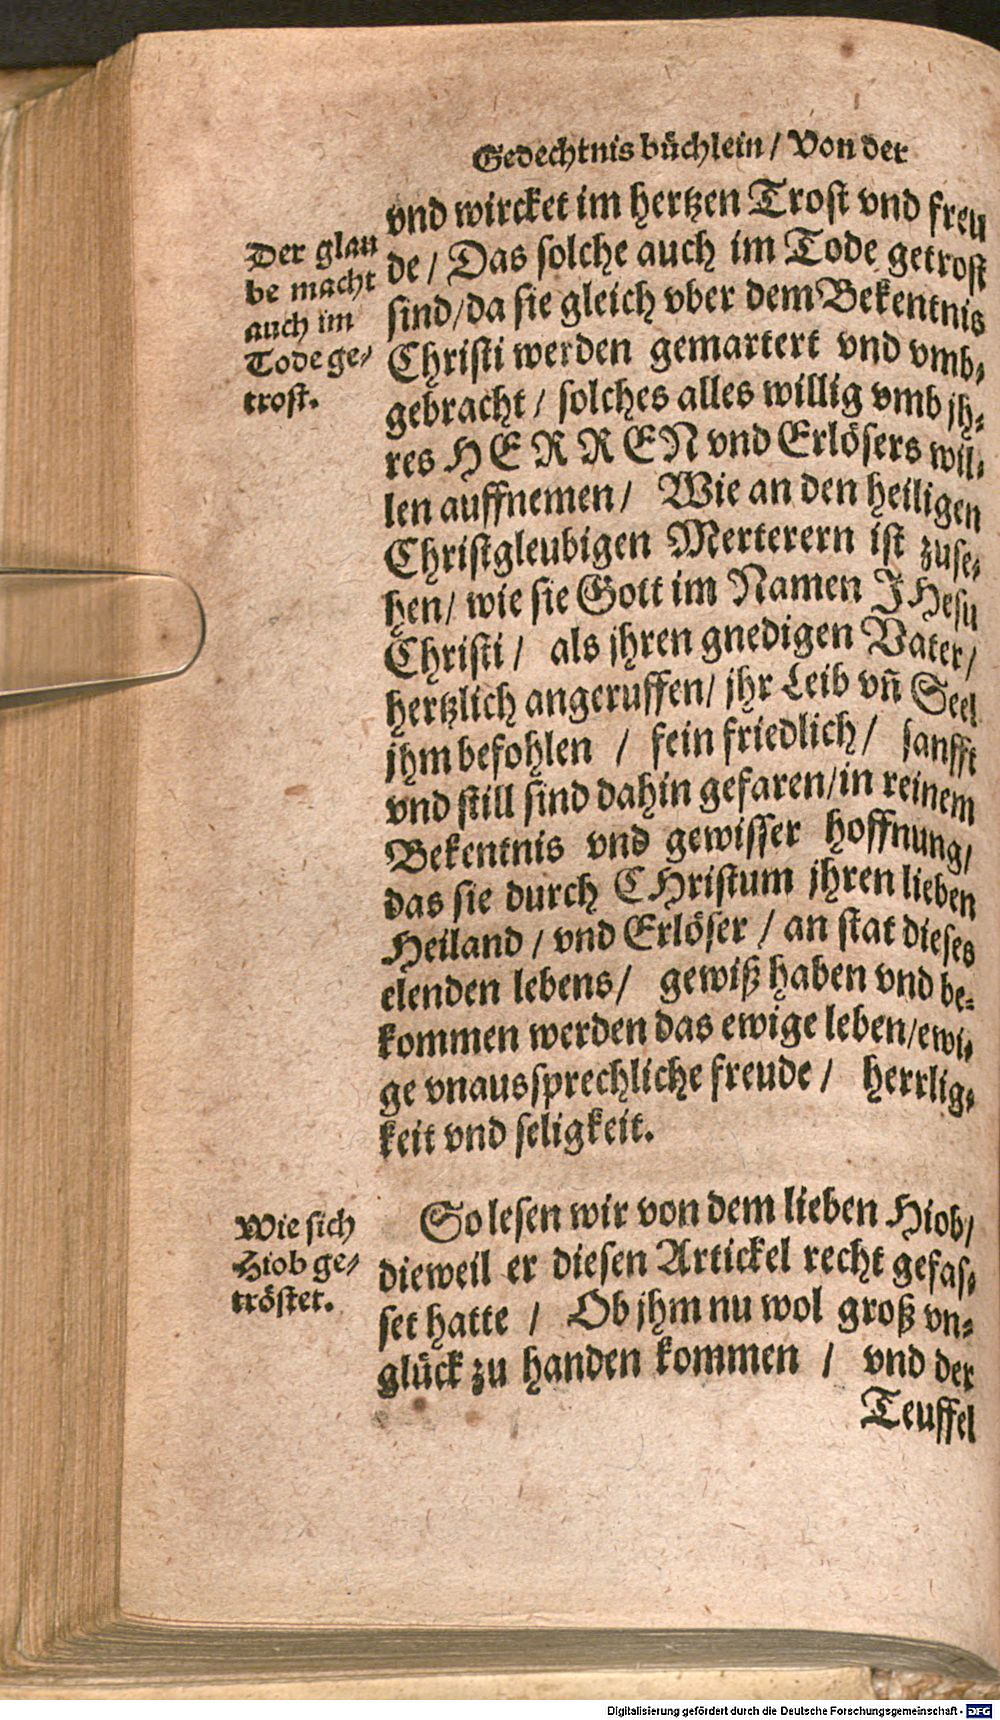 Gedechtnis büchlein / Von der
vnd wircket im hertzen Trost vnd freu
de / Das solche auch im Tode getrost
sind/da sie gleich vber dem Bekentnis
Christi werden gemartert vnd vmb-
gebracht / solches alles willig vmb jh-
res HERREN vnd Erlösers wil-
len auffnemen / Wie an den heiligen
Christgleubigen Merterern ist zuse-
hen / wie sie Gott im Namen JHesu
Christi / als jhren gnedigen Vater /
hertzlich angeruffen / jhr Leib vñ Seel
jhm befohlen / fein friedlich / sanfft
vnd still sind dahin gefaren/in reinem
Bekentnis vnd gewisser hoffnung /
das sie durch CHristum jhren lieben
Heiland / vnd Erlöser / an stat dieses
elenden lebens / gewiß haben vnd be-
kommen werden das ewige leben/ewi-
ge vnaussprechliche freude / herrlig-
keit vnd seligkeit.
So lesen wir von dem lieben Hiob /
dieweil er diesen Artickel recht gefas-
set hatte / Ob jhm nu wol groß vn-
glück zu handen kommen / vnd der
Teuffel
Der glau
be macht
auch im
Tode ge-
trost.
Wie sich
Hiob ge-
tröstet.
Digitalisierung gefördert durch die Deutsche Forschungsgemeinschaft - DFG